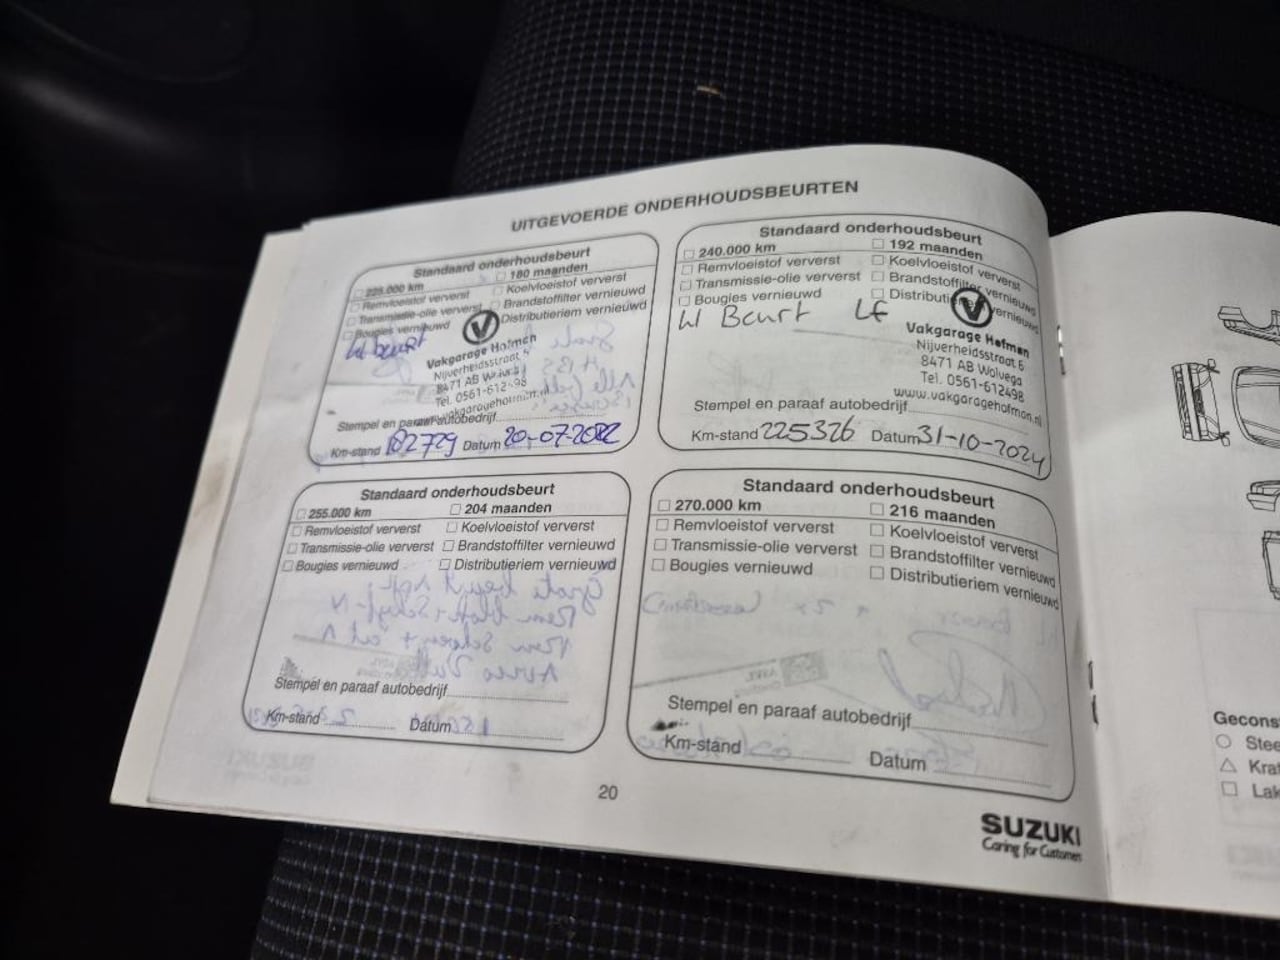 UITGEVOERDE ONDERHOUDSBEURTEN
Standaard onderhoudsbeurt
225.000 km 180 maanden
Remvloeistof ververst Koelvloeistof ververst
Transmissie-olie ververst Brandstoffilter vernieuwd
Bougies vernieuwd Distributieriem vernieuwd
kl beurt
Vakgarage Hofman
Nijverheidsstraat 6
8471 AB Wolvega
Tel. 0561-612498
www.vakgaragehofman.nl
Stempel en paraaf autobedrijf
Km-stand 182729 Datum 20-07-2022
Standaard onderhoudsbeurt
240.000 km 192 maanden
Remvloeistof ververst Koelvloeistof ververst
Transmissie-olie ververst Brandstoffilter vernieuwd
Bougies vernieuwd Distributieriem vernieuwd
kl Beurt
Vakgarage Hofman
Nijverheidsstraat 6
8471 AB Wolvega
Tel. 0561-612498
www.vakgaragehofman.nl
Stempel en paraaf autobedrijf
Km-stand 225326 Datum 31-10-2024
Standaard onderhoudsbeurt
255.000 km 204 maanden
Remvloeistof ververst Koelvloeistof ververst
Transmissie-olie ververst Brandstoffilter vernieuwd
Bougies vernieuwd Distributieriem vernieuwd
Stempel en paraaf autobedrijf
Km-stand Datum
Standaard onderhoudsbeurt
270.000 km 216 maanden
Remvloeistof ververst Koelvloeistof ververst
Transmissie-olie ververst Brandstoffilter vernieuwd
Bougies vernieuwd Distributieriem vernieuwd
Stempel en paraaf autobedrijf
Km-stand Datum
20
SUZUKI
Caring for Customers